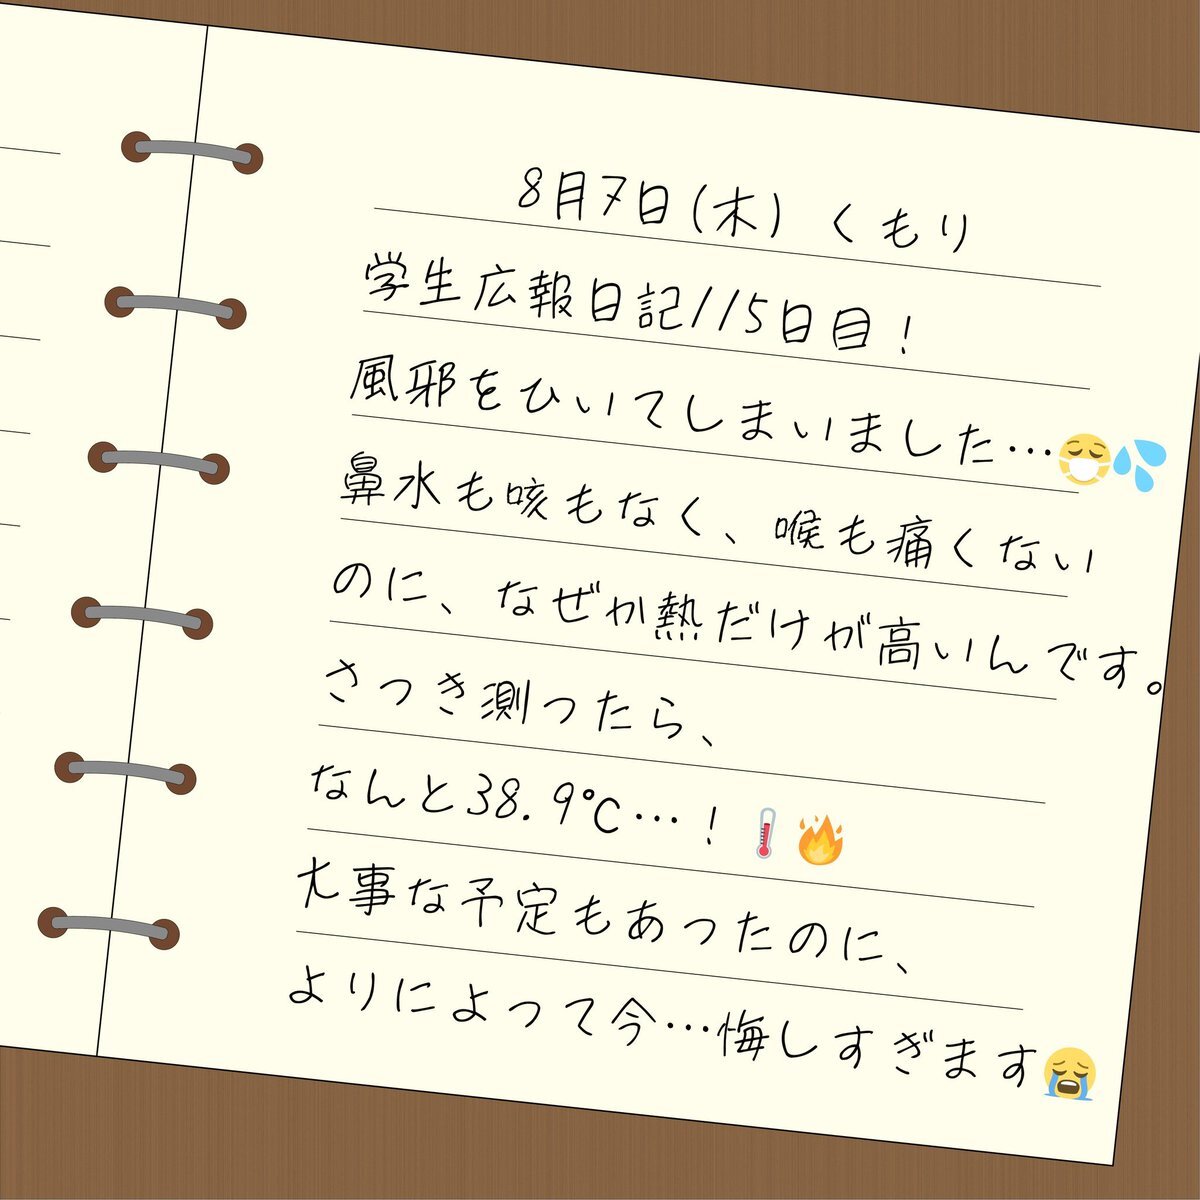 8月7日(木) くもり
学生広報日記115日目!
風邪をひいてしまいました…😷💦
鼻水も咳もなく、喉も痛くない
のに、なぜか熱だけが高いんです。
さっき測ったら、
なんと38.9℃…!🌡️🔥
大事な予定もあったのに、
よりによって今…悔しすぎます😭